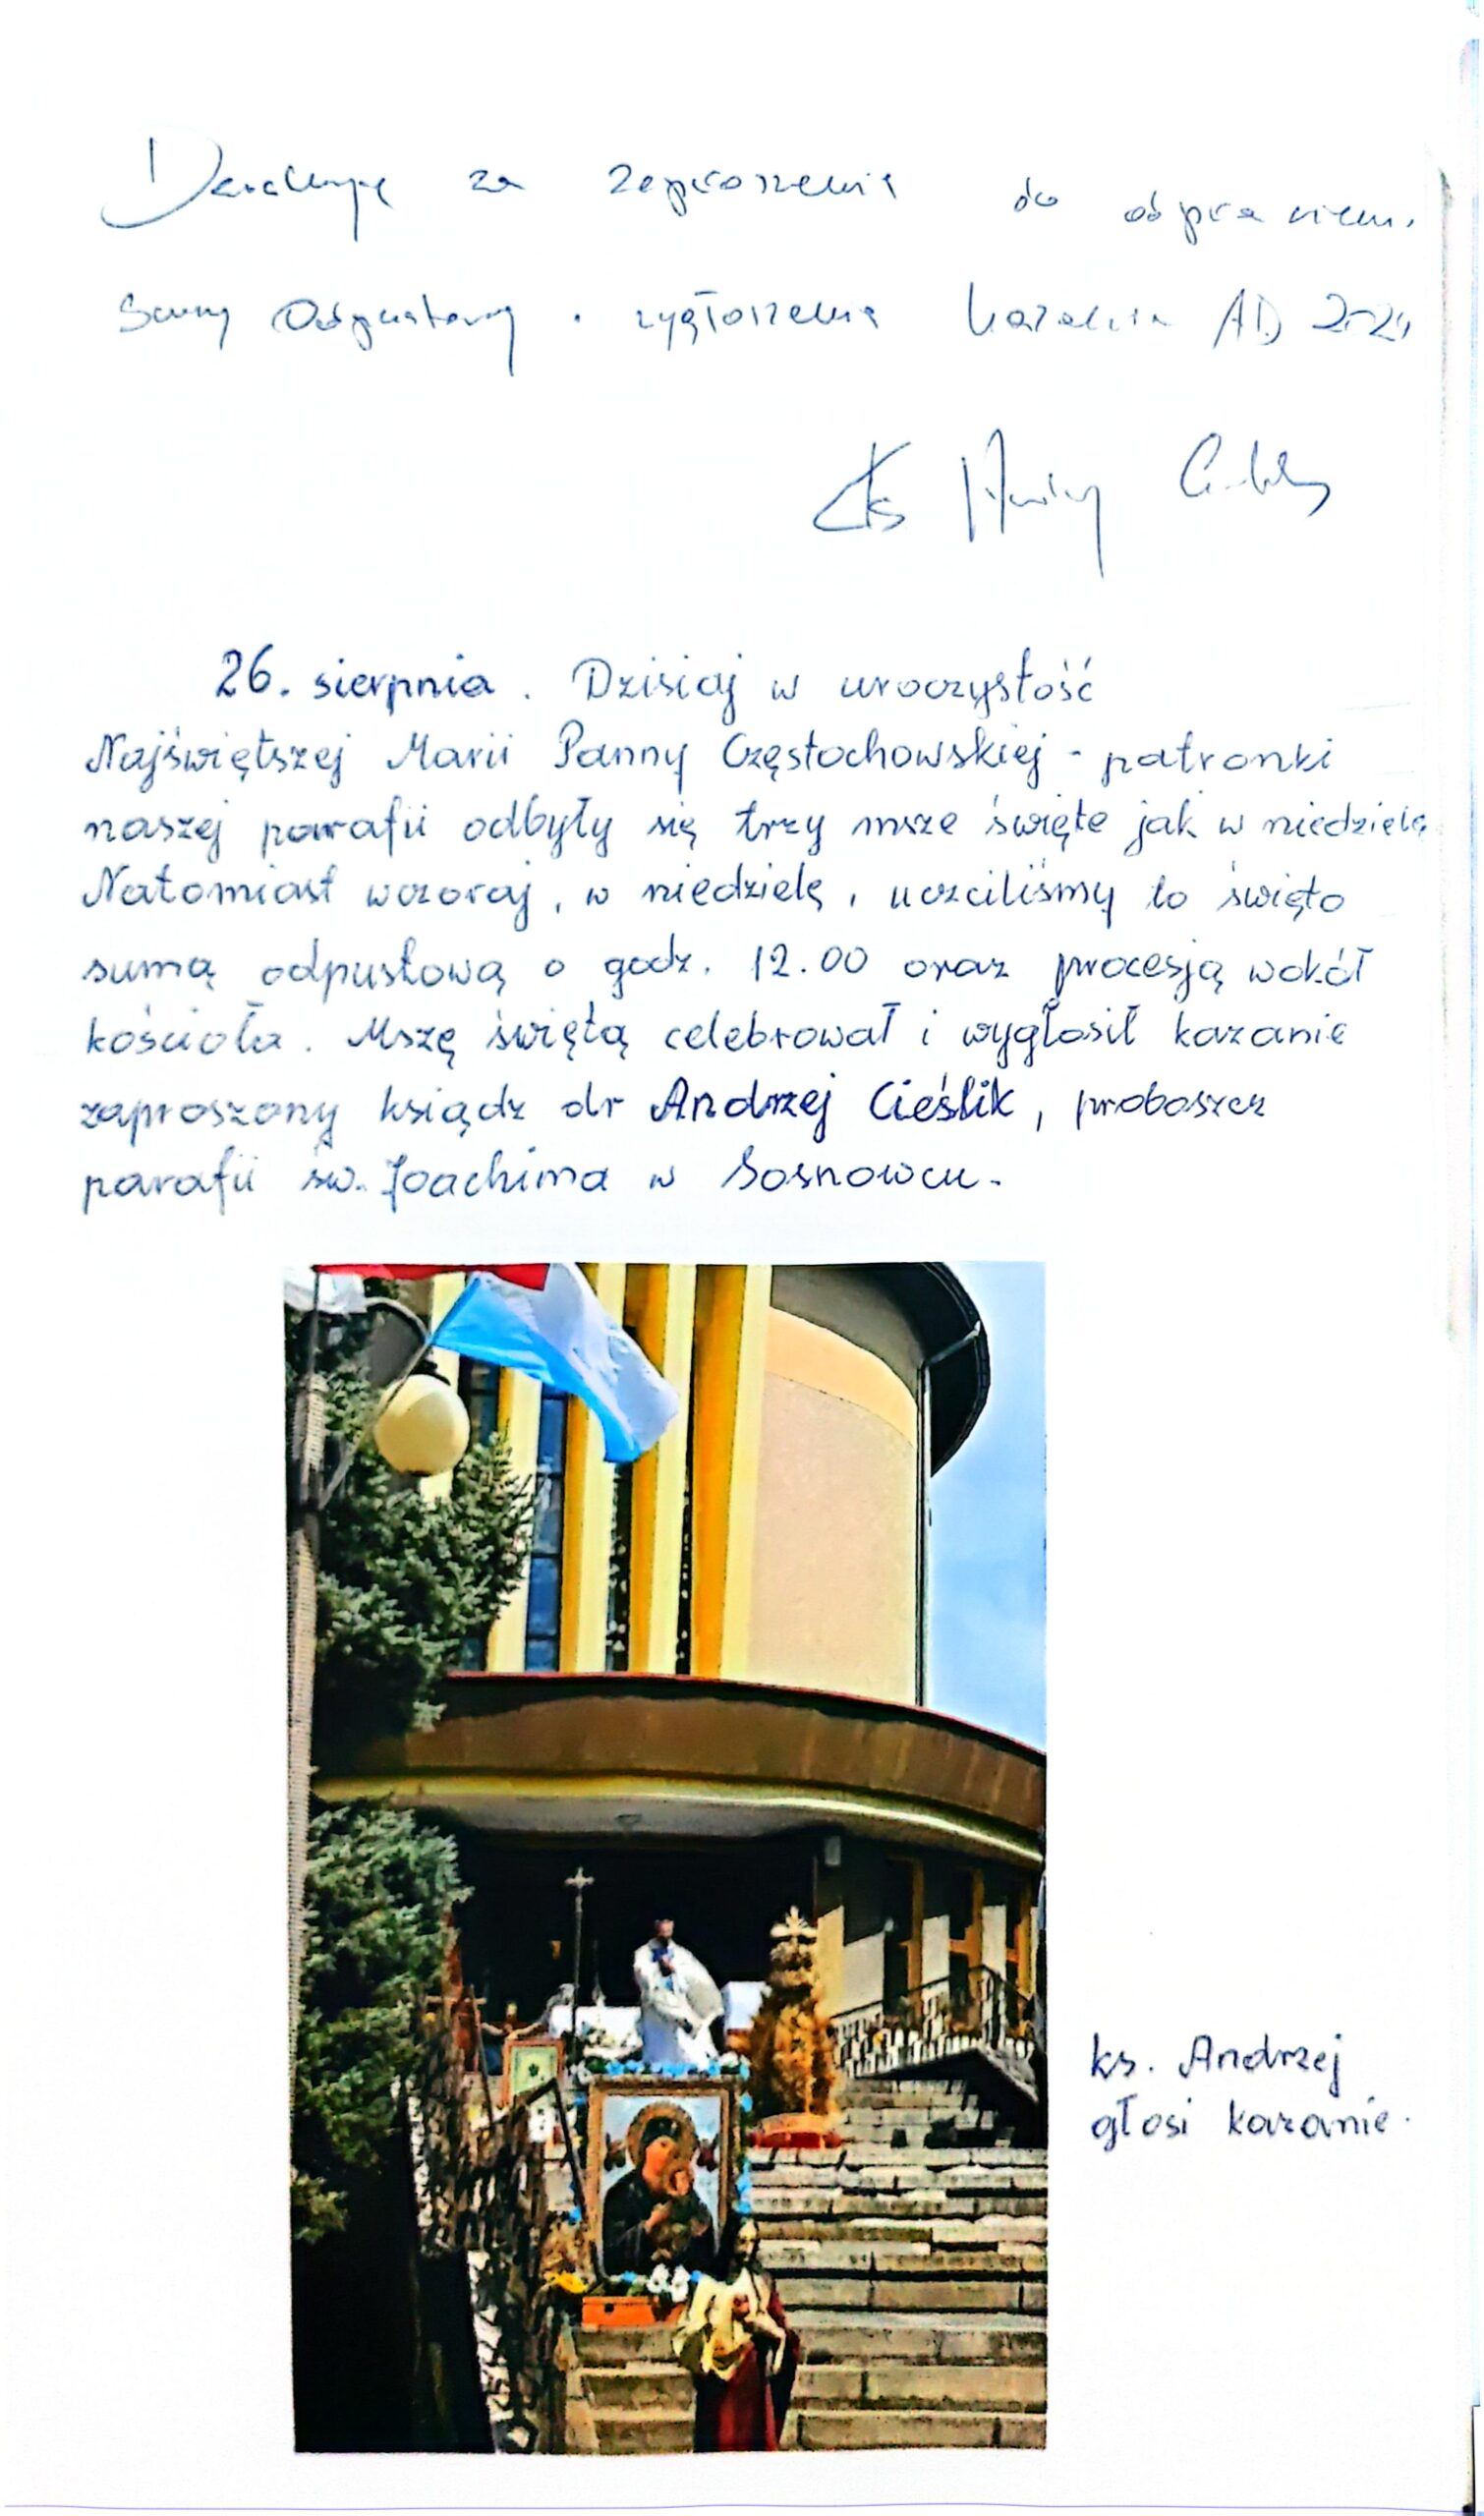 Dziękuję za zaproszenie do odprawien.
Sumy Odpustowej i wygłoszenia kazania AD 2024
Ks Andrzej Cieślik
26. sierpnia. Dzisiaj w uroczystość
Najświętszej Marii Panny Częstochowskiej - patronki
naszej parafii odbyły się trzy msze święte jak w niedzielę
Natomiast wczoraj, w niedzielę, uczciliśmy to święto
sumą odpustową o godz. 12.00 oraz procesją wokół
kościoła. Mszę świętą celebrował i wygłosił kazanie
zaproszony ksiądz dr Andrzej Cieślik, proboszcz
parafii św. Joachima w Sosnowcu.
ks. Andrzej
głosi kazanie.